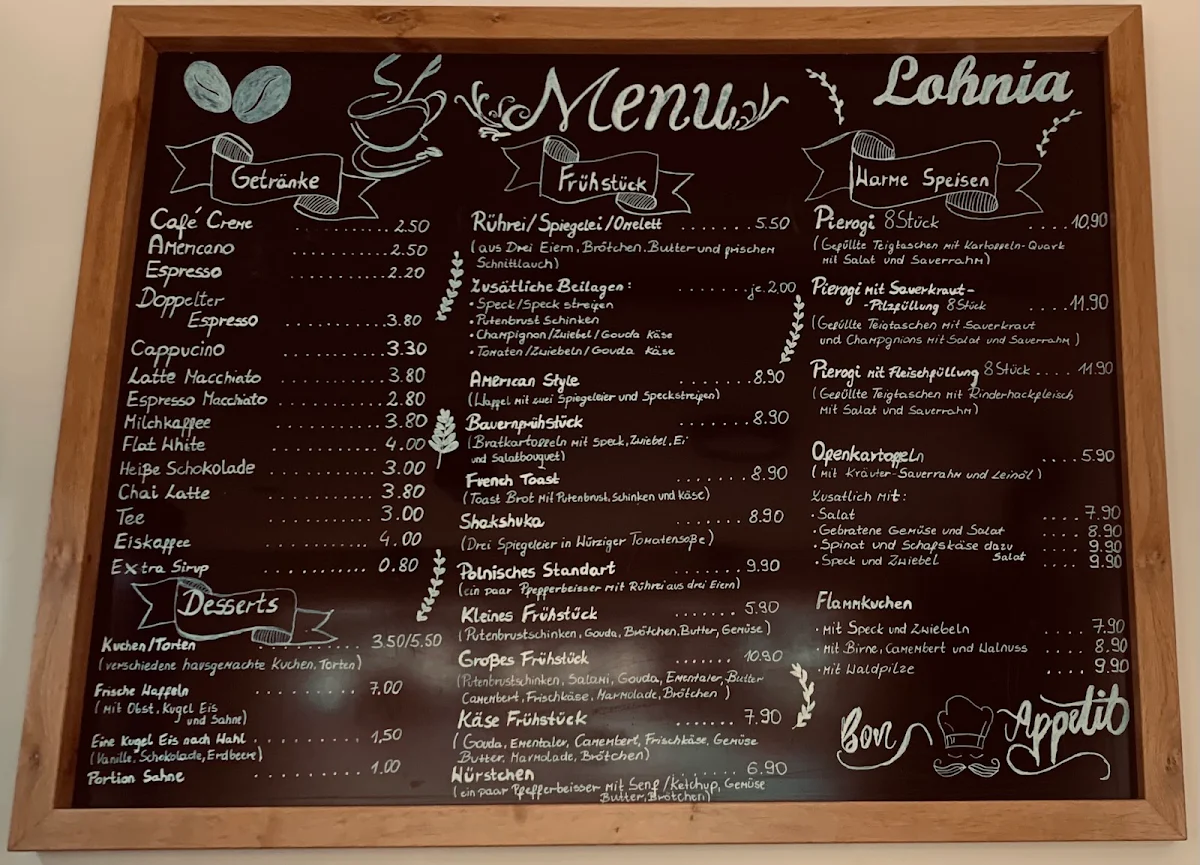 Menu
Lohnia
Getränke
Café Creme ............ 2.50
Americano ............ 2.50
Espresso ............ 2.20
Doppelter
Espresso ............ 3.80
Cappucino ............ 3.30
Latte Macchiato ............ 3.80
Espresso Macchiato ............ 2.80
Milchkaffee ............ 3.80
Flat White ............ 4.00
Heiße Schokolade ............ 3.00
Chai Latte ............ 3.80
Tee ............ 3.00
Eiskaffee ............ 4.00
Extra Sirup ............ 0.80
Desserts
Kuchen/Torten ............ 3.50/5.50
(verschiedene hausgemachte Kuchen, Torten)
Frische Waffeln ............ 7.00
(mit Obst, Kugel Eis
und Sahne)
Eine Kugel Eis nach Wahl ............ 1,50
(Vanille, Schokolade, Erdbeere)
Portion Sahne ............ 1.00
Frühstück
Rührei/Spiegelei/Omelett ....... 5.50
(aus Drei Eiern, Brötchen, Butter und frischen
Schnittlauch)
Zusätliche Beilagen: ........ je 2,00
• Speck/Speck streifen
• Putenbrust Schinken
• Champignon/Zwiebel/Gouda Käse
• Tomaten/Zwiebeln/Gouda Käse
American Style ........ 8.90
(Waffel mit zwei Spiegeleier und Speckstreifen)
Bauernfrühstück ....... 8.90
(Bratkartoffeln mit Speck, Zwiebel, Ei
und Salatbouquet)
French Toast ....... 8.90
(Toast Brot mit Putenbrust, Schinken und Käse)
Shakshuka ....... 8.90
(Drei Spiegeleier in Würziger Tomatensoße)
Polnisches Standart ....... 9.90
(ein paar Pfefferbeisser mit Rührei aus drei Eiern)
Kleines Frühstück ....... 5.90
(Putenbrustschinken, Gouda, Brötchen, Butter, Gemüse)
Großes Frühstück ....... 10.90
(Putenbrustschinken, Salami, Gouda, Ementaler, Butter
Camembert, Frischkäse, Marmolade, Brötchen)
Käse Frühstück ....... 7.90
(Gouda, Ementaler, Camembert, Frischkäse, Gemüse
Butter, Marmolade, Brötchen)
Würstchen ....... 6.90
(ein paar Pfefferbeisser mit Senf/Ketchup, Gemüse
Butter, Brötchen)
Warme Speisen
Pierogi 8 Stück ..... 10,90
(Gefüllte Teigtaschen mit Kartoffeln-Quark
mit Salat und Sauerrahm)
Pierogi mit Sauerkraut-
-Pilzfüllung 8 Stück .... 11.90
(Gefüllte Teigtaschen mit Sauerkraut
und Champgnions mit Salat und Sauerrahm)
Pierogi mit Fleischfüllung 8 Stück .... 11.90
(Gefüllte Teigtaschen mit Rinderhackfleisch
mit Salat und Sauerrahm)
Ofenkartoffeln .... 5.90
(mit Kräuter-Sauerrahm und Leinöl)
Zusatlich mit:
• Salat .... 7.90
• Gebratene Gemüse und Salat .... 8.90
• Spinat und Schafskäse dazu Salat .... 9.90
• Speck und Zwiebel .... 9.90
Flammkuchen
• mit Speck und Zwiebeln .... 7.90
• mit Birne, Camembert und Walnuss .... 8.90
• mit Waldpilze .... 9.90
Bon Appetit